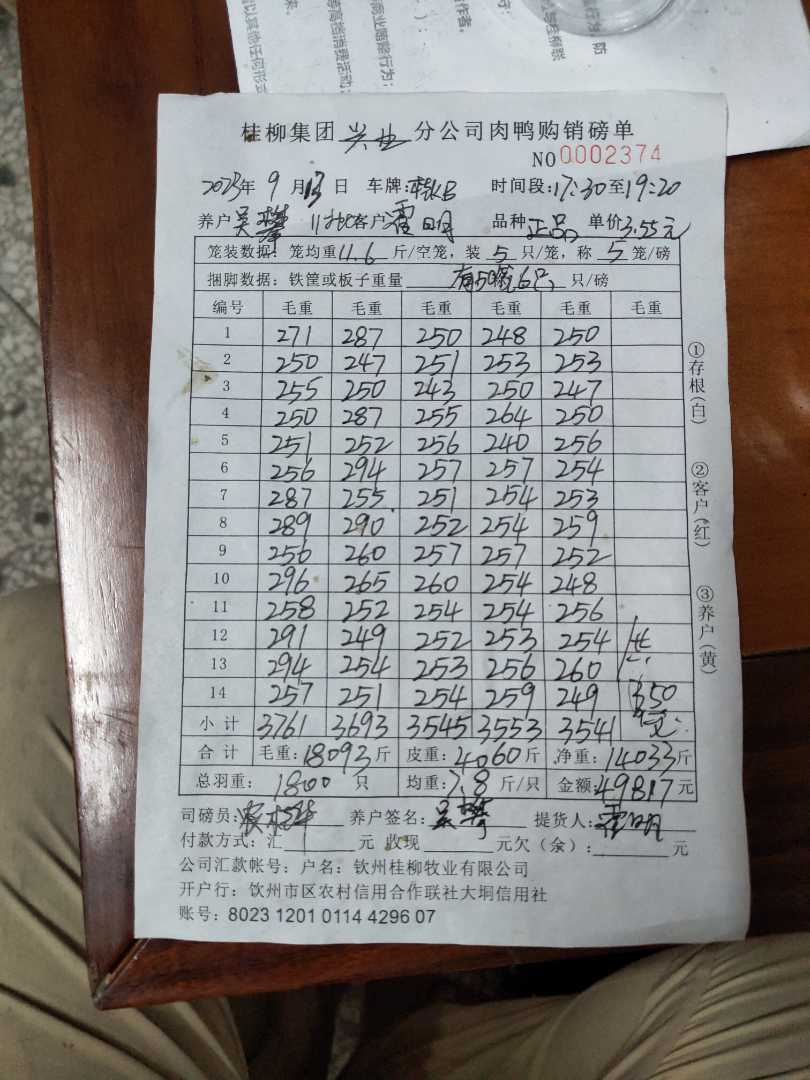 桂柳集团 兴业 分公司肉鸭购销磅单
NO 0002374
2023年 9 月 13 日 车牌: 时间段:17:30至19:20
养户 吴攀 客户 霍明 品种 正品 单价 3.55元
笼装数据: 笼均重 11.6 斤/空笼, 装 5 只/笼, 称 5 笼/磅
捆脚数据: 铁筐或板子重量 有50笼6只 只/磅
编号 毛重 毛重 毛重 毛重 毛重 毛重
1 271 287 250 248 250
2 250 247 251 253 253
3 255 250 243 250 247
4 250 287 255 264 250
5 251 252 256 240 256
6 256 294 257 257 254
7 287 255 251 254 253
8 289 290 252 254 259
9 256 260 257 257 252
10 296 265 260 254 248
11 258 252 254 254 256
12 291 249 252 253 254 共
13 294 254 253 256 260
14 257 251 254 259 249 350
小计 3761 3693 3545 3553 3541 笼
合计 毛重: 18093斤 皮重: 4060斤 净重: 14033斤
总羽重: 1800 只 均重: 7.8 斤/只 金额: 49817元
司磅员: 养户签名: 吴攀 提货人: 霍明
付款方式: 汇 元 收现 元欠(余): 元
公司汇款帐号: 户名: 钦州桂柳牧业有限公司
开户行: 钦州市区农村信用合作联社大垌信用社
账号: 8023 1201 0114 4296 07
①存根(白)
②客户(红)
③养户(黄)